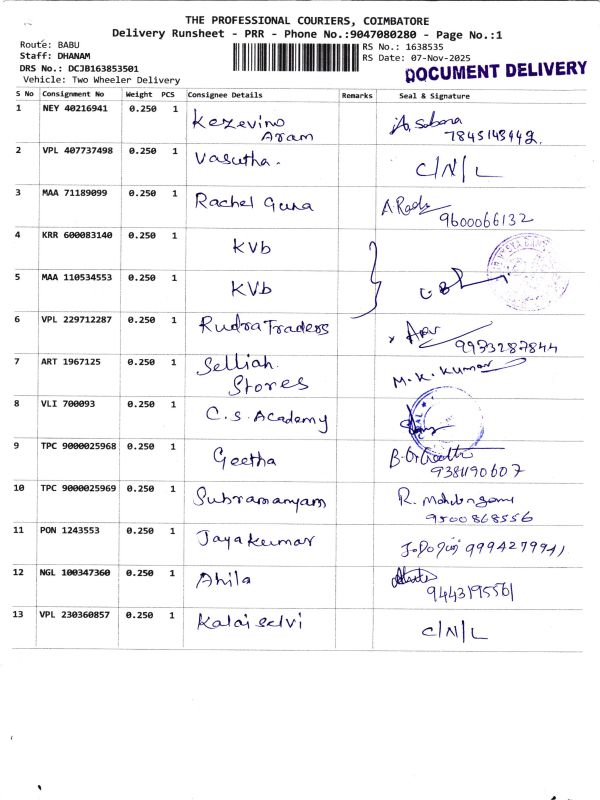 THE PROFESSIONAL COURIERS, COIMBATORE
Delivery Runsheet - PRR - Phone No.:9047080280 - Page No.:1
Route: BABU RS No.: 1638535
Staff: DHANAM RS Date: 07-Nov-2025
DRS No.: DCJB163853501 DOCUMENT DELIVERY
Vehicle: Two Wheeler Delivery
S No Consignment No Weight PCS Consignee Details Remarks Seal & Signature
1 NEY 40216941 0.250 1 Kezevino A. Sabana
Aram 7845143442.
2 VPL 407737498 0.250 1 Vasutha. C/N/L
3 MAA 71189099 0.250 1 Rachel Guna
9600066132
4 KRR 600083140 0.250 1 KVb
5 MAA 110534553 0.250 1 KVb
6 VPL 229712287 0.250 1 Rudra Traders
9933287844
7 ART 1967125 0.250 1 Selliah M. K. Kumar
Stores
8 VLI 700093 0.250 1 C.S. Academy
9 TPC 9000025968 0.250 1 Geetha
9381190607
10 TPC 9000025969 0.250 1 Subramanyam R.
9500868556
11 PON 1243553 0.250 1 Jayakumar 9994279941
12 NGL 100347360 0.250 1 Ahila
9443195561
13 VPL 230360857 0.250 1 Kalaiselvi C/N/L